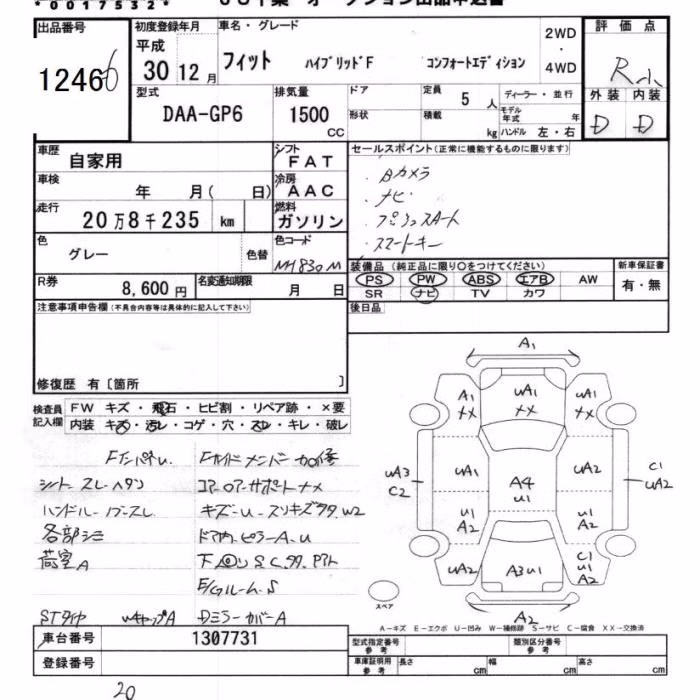 *0017532*
出品番号
1246
初度登録年月
平成
30 12 月
車名・グレード
フィット ハイブリッドF コンフォートエディション
2WD
・
4WD
評価点
R
外装 内装
D D
型式
DAA-GP6
排気量
1500
CC
ドア
形状
定員 5 人
積載 kg
ディーラー・並行
モデル年式 年
ハンドル 左・右
車歴
自家用
シフト
FAT
セールスポイント(正常に機能するものに限ります)
・Bカメラ
・ナビ
・プッシュスタート
・スマートキー
車検
年 月( 日)
冷房
AAC
走行
20万8千235 km
燃料
ガソリン
色
グレー
色替
色コード
NH830M
装備品(純正品に限り○をつけてください)
PS PW ABS エアB AW
SR ナビ TV カワ
新車保証書
有・無
R券
8,600円
名変通知期限
月 日
後日品
注意事項申告欄(不具合内容等は具体的に記入して下さい)
修復歴 有〔箇所 〕
検査員記入欄
FW キズ・飛石・ヒビ割・リペア跡・×要
内装 キズ・汚レ・コゲ・穴・スレ・キレ・破レ
シート スレ・ヘタリ
各部シミ
荷室A
STタイヤ
コアロアサポートナメ
ドア内・ピラーA・U
DミラーカバーA
A1
A1
××
UA1
××
UA1
××
UA3
C2
UA1
A4
U1
UA2
C1
UA2
U1
A2
U1
A2
UA2
A3U1
C1
U1
A2
A2
スペア
A－キズ E－エクボ U－凹み W－補修跡 S－サビ C－腐食 XX－交換済
車台番号
1307731
登録番号
型式指定番号
参考
類別区分番号
参考
車庫証明用
参考
長さ cm
幅 cm
高さ cm
20